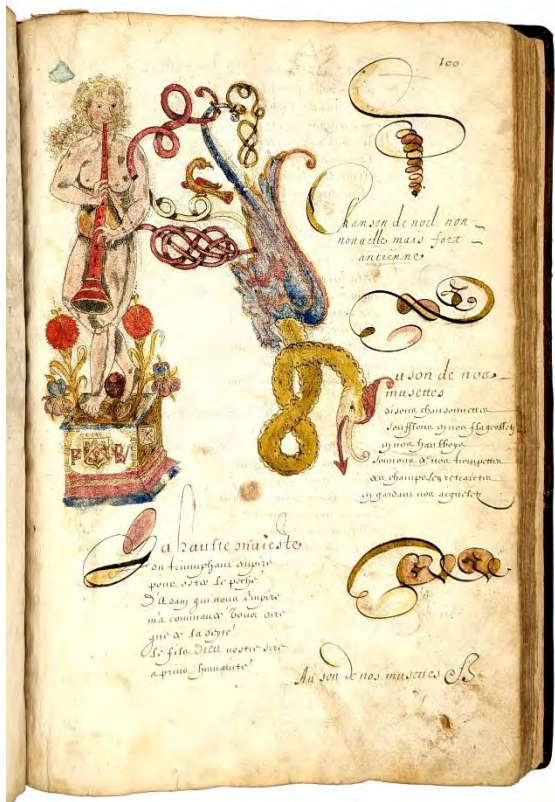 100
Chanson de noel non
nouvelle mais fort
antienne
F B
Au son de nos
musettes
disons chansonnettes
soufflons en nos flageolletz
en nos haulboys
sonnons de nos trompettes
des champs les retraictes
en gardant nos aigneletz
La haulte maieste
du triumphant empire
pour oster le peché
D'Adam qui nous empire
m'a commandé vous dire
que de la deyté
Le fils Dieu nostre sire
a prins humanité
Au son de nos musettes